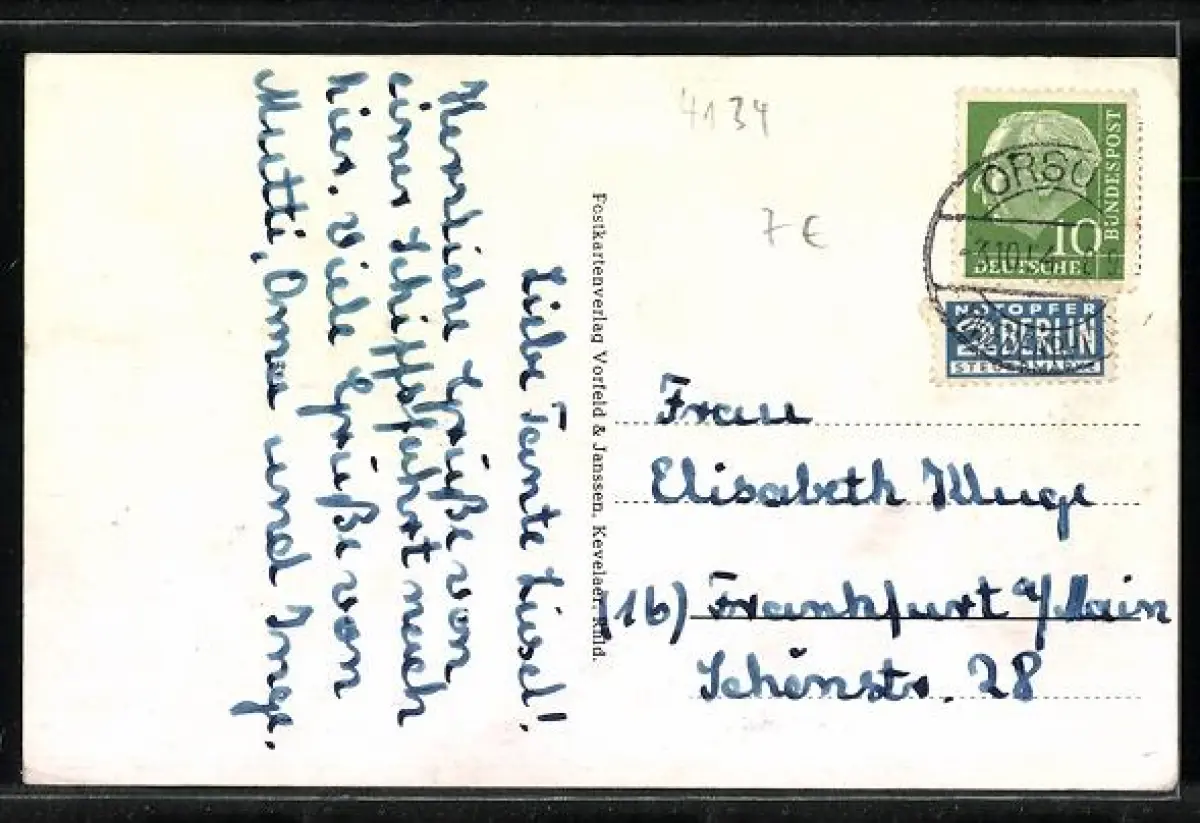 Liebe Tante Liesel!
Herzliche Grüße von
einer Schiffsfahrt nach
hier. Viele Grüße von
Mutti, Omas und Inge.
Postkartenverlag Vorfeld & Janssen, Kevelaer, Rhld.
4134
7 €
BUNDESPOST
10
DEUTSCHE
ORSO
-3.10.
NOTOPFER
2 BERLIN
STEUERMARKE
Frau
Elisabeth Kluge
(16) Frankfurt a/Main
Schönstr. 28